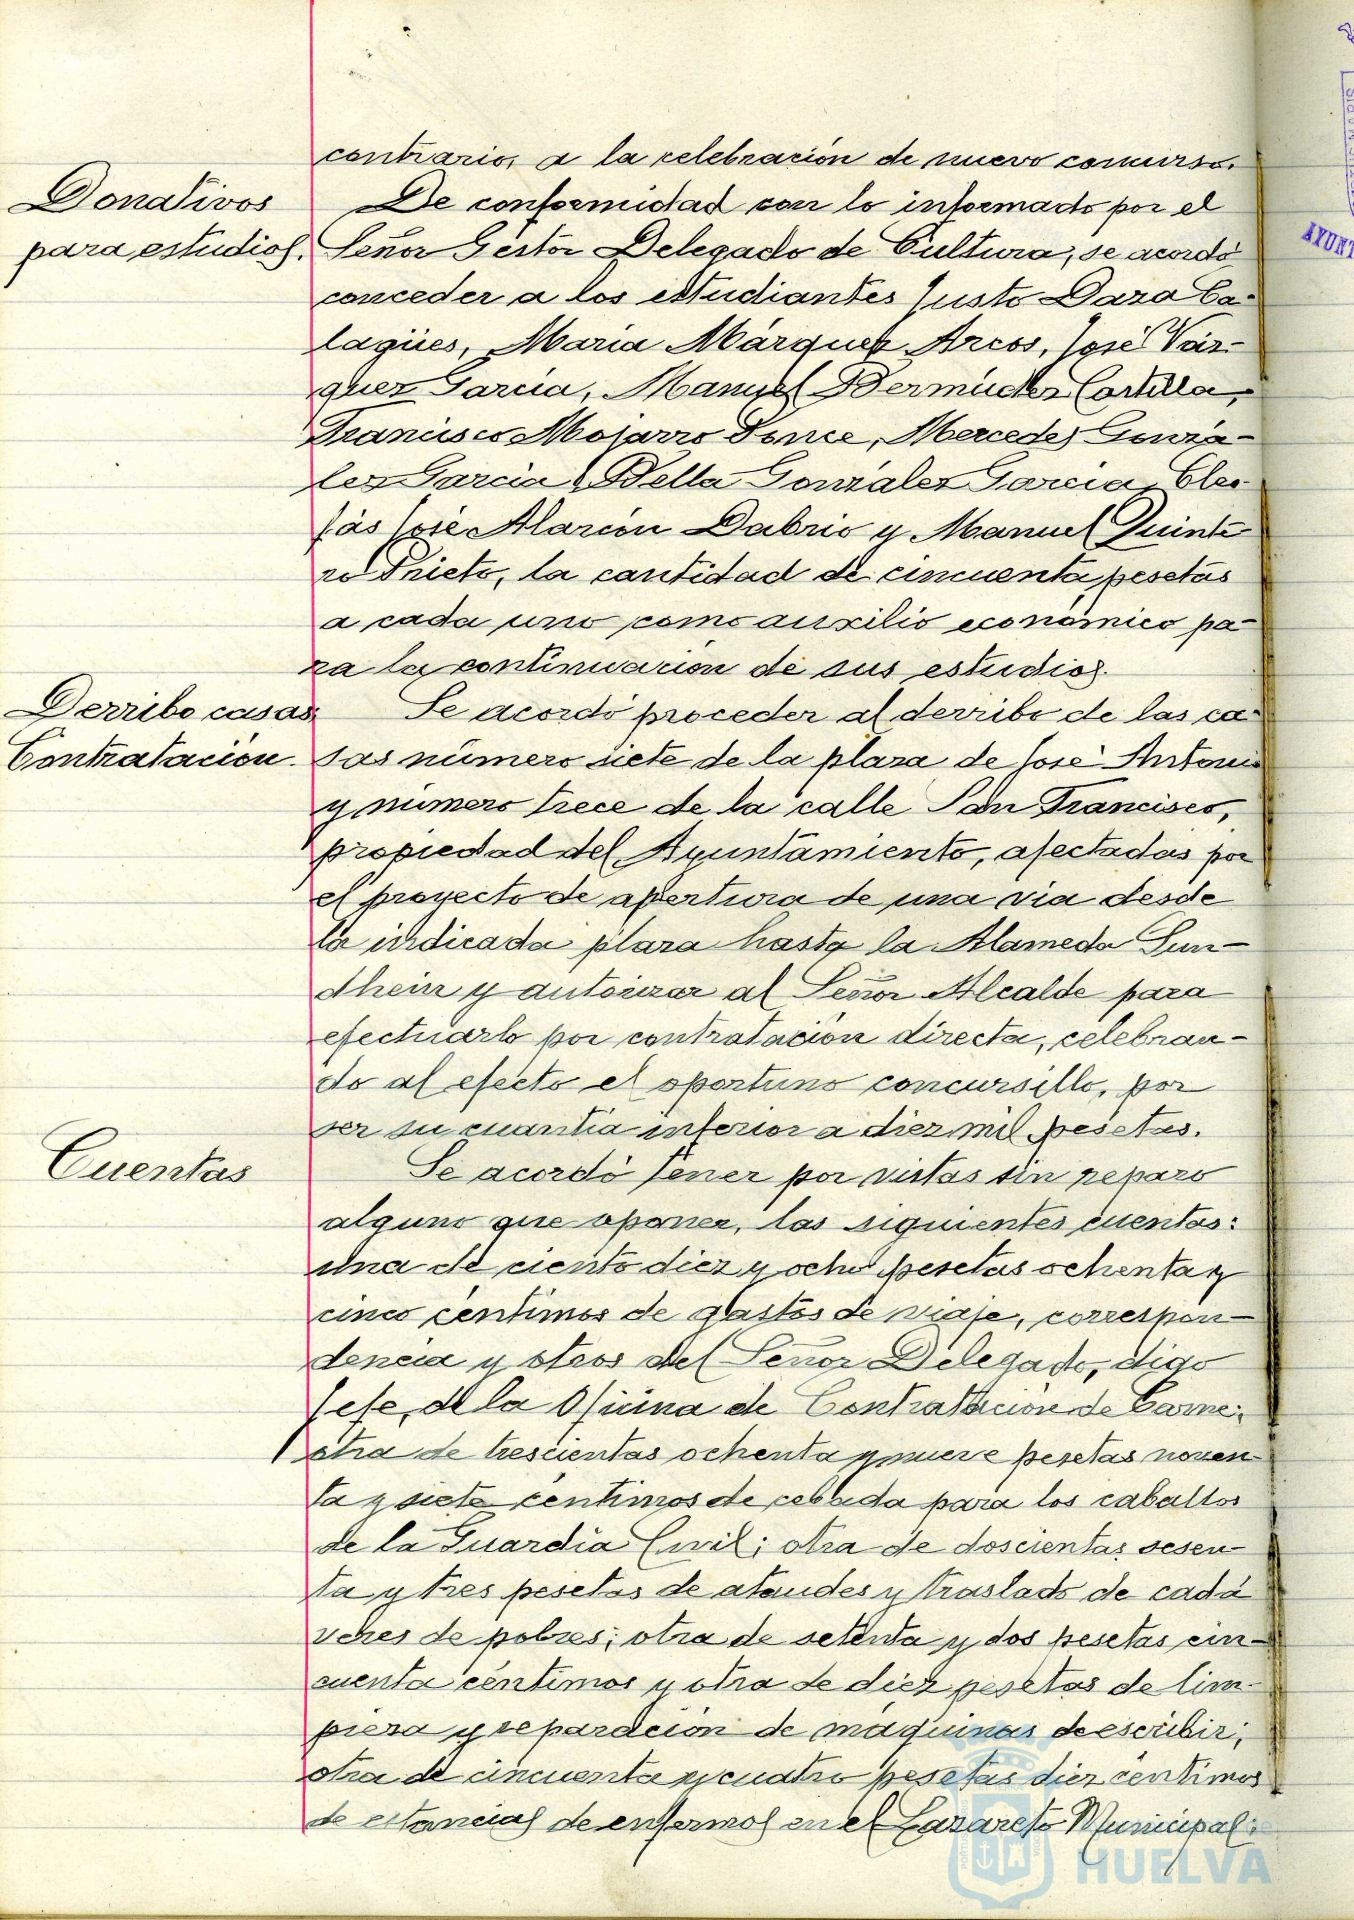 contrario, a la celebración de nuevo concurso.
Donativos
para estudios.
De conformidad con lo informado por el
Señor Gestor Delegado de Cultura, se acordó
conceder a los estudiantes Justo Daza Ca-
lagües, María Márquez Arcos, José Váz-
quez García, Manuel Bermúdez Castilla,
Francisco Mojarro Ponce, Mercedes Gonzá-
lez García, Bella González García, Cleo-
fás José Alarcón Dabrio y Manuel Quinte
ro Prieto, la cantidad de cincuenta pesetas
a cada uno como auxilio económico pa-
ra la continuación de sus estudios.
Derribo casas
Contratación.
Se acordó proceder al derribo de las ca-
sas número siete de la plaza de José Antonio
y número trece de la calle San Francisco,
propiedad del Ayuntamiento, afectadas por
el proyecto de apertura de una via desde
la indicada plaza hasta la Alameda Sun-
dhein y autorizar al Señor Alcalde para
efectuarlo por contratación directa, celebran-
do al efecto el oportuno concursillo, por
ser su cuantía inferior a diez mil pesetas.
Cuentas
Se acordó tener por vistas sin reparo
alguno que oponer, las siguientes cuentas:
una de ciento diez y ocho pesetas ochenta y
cinco céntimos de gastos de viaje, correspon-
dencia y otros del Señor Delegado, digo
Jefe, de la Oficina de Contratación de Carne;
otra de trescientas ochenta y nueve pesetas noven-
ta y siete céntimos de cebada para los caballos
de la Guardia Civil; otra de doscientas sesen-
ta y tres pesetas de ataudes y traslado de cadá
veres de pobres; otra de setenta y dos pesetas cin-
cuenta céntimos y otra de diez pesetas de lim-
pieza y reparación de máquinas de escribir;
otra de cincuenta y cuatro pesetas diez céntimos
de estancias de enfermos en el Lazareto Municipal;
HUELVA